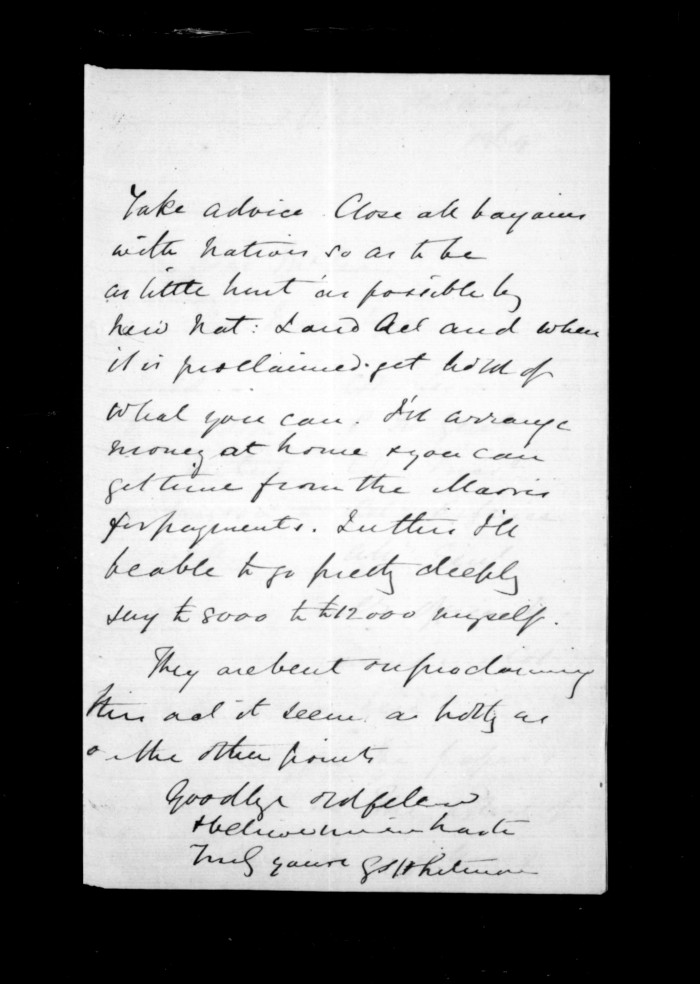 Take advice. Close all bargains
with Natives so as to be
as little hurt as possible by
New Nat: Land Act and when
it is proclaimed get hold of
what you can. I'll arrange
money at home & you can
get time from the Maoris
for payments. In this I'll
be able to go pretty deeply
say to 8000 to 12000 myself.
They are bent on proclaiming
this act it seems as hotly as
on the other points
Goodbye old fellow
& believe me in haste
Truly yours G S Whitmore